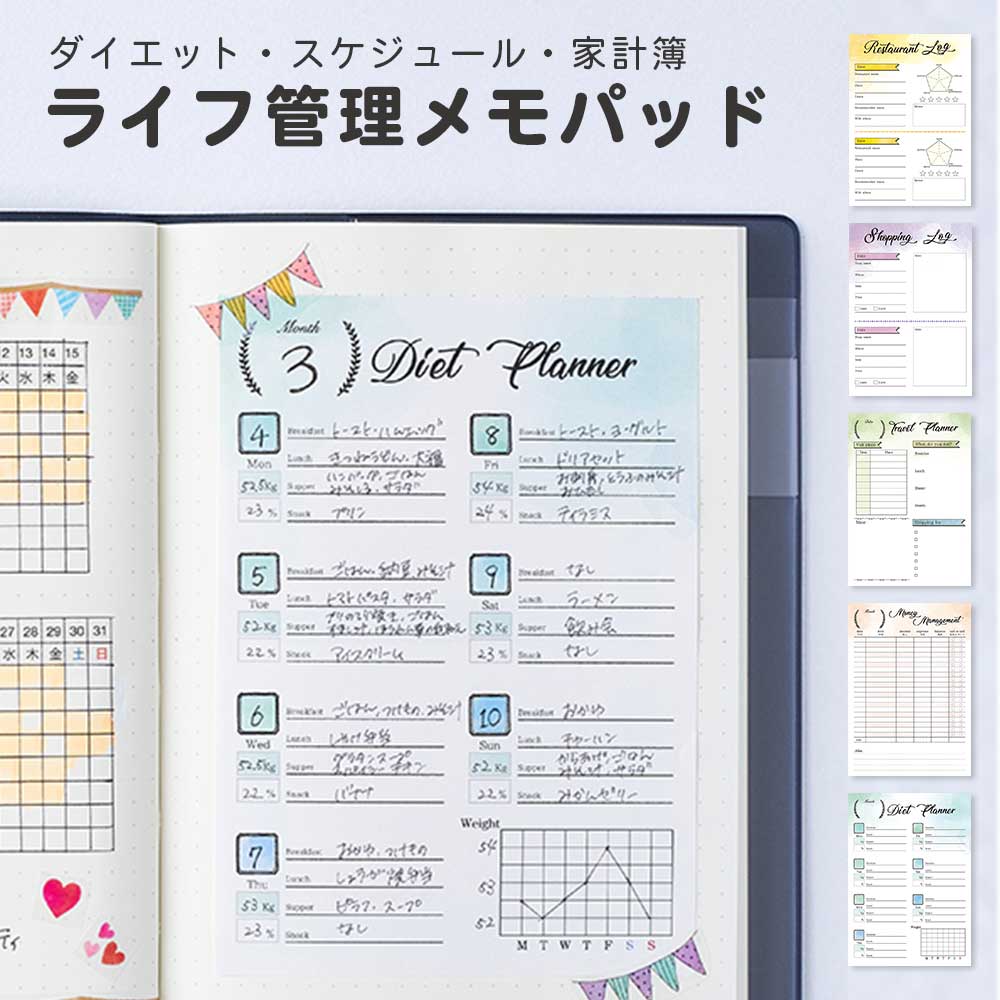 ダイエット・スケジュール・家計簿
ライフ管理メモパッド
12 13 14 15
火 水 木 金
27 28 29 30 31
水 木 金 土 日
Month
3
Diet Planner
4
Mon
52.5Kg
23 %
Breakfast トースト・ハムエッグ
Lunch きつねうどん、大福
Supper ハンバーグ、ごはん
みそしる、サラダ
Snack プリン
5
Tue
52 Kg
22 %
Breakfast ごはん、納豆、みそ汁
Lunch トマトパスタ、サラダ
Supper ブリのてり焼き、ごはん
Snack アイスクリーム
6
Wed
52.5Kg
22 %
Breakfast ごはん、つけもの、みそ汁
Lunch しゃけ弁当
Supper グラタンスープ
チキン
Snack バナナ
7
Thu
53 Kg
23 %
Breakfast おかゆ、つけもの
Lunch しょうが焼弁当
Supper ピラフ、スープ
Snack なし
8
Fri
54 Kg
24 %
Breakfast トースト、ヨーグルト
Lunch ドリアセット
Supper お刺身、とうふのみそ汁
Snack ティラミス
9
Sat
53 Kg
23 %
Breakfast なし
Lunch ラーメン
Supper 飲み会
Snack なし
10
Sun
52 Kg
22 %
Breakfast おかゆ
Lunch チャーハン
Supper からあげ、ごはん
みそ汁、サラダ
Snack みかんゼリー
Weight
54
53
52
M T W T F S S
ティ
Restaurant Log
Shopping Log
Travel Planner
Money
Management
Month
Diet Planner
Weight
M T W T F S S